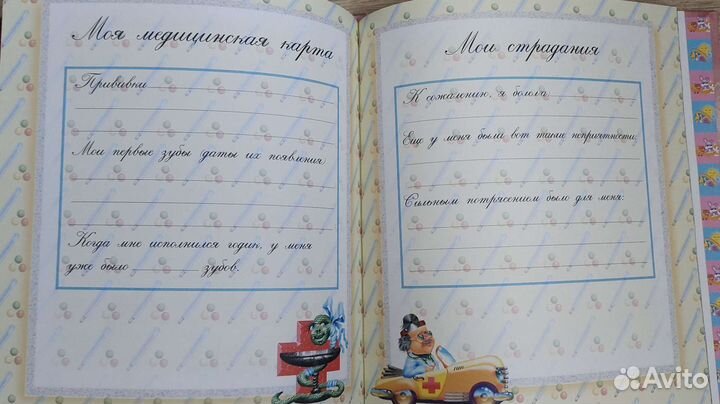 Моя медицинская карта
Прививки
Мои первые зубы (даты их появления)
Когда мне исполнился годик, у меня
уже было зубов.
Мои страдания
К сожалению, я болела:
Еще у меня были вот такие неприятности:
Сильным потрясением было для меня:
Avito